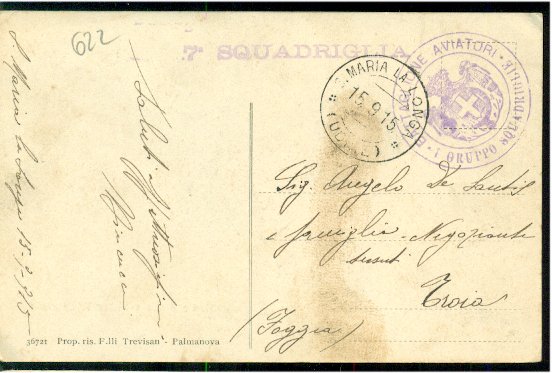 622
7ª SQUADRIGLIA
S. MARIA LA LONGA
15.9.15
(UDINE)
AVIATORI - I GRUPPO SQUADRIGLIE
S. Maria la Longa 15-9-915
Saluti
Sig. Angelo De Santis
e famiglia - Negoziante
tessuti
Troia
(Foggia)
36721 Prop. ris. F.lli Trevisan - Palmanova